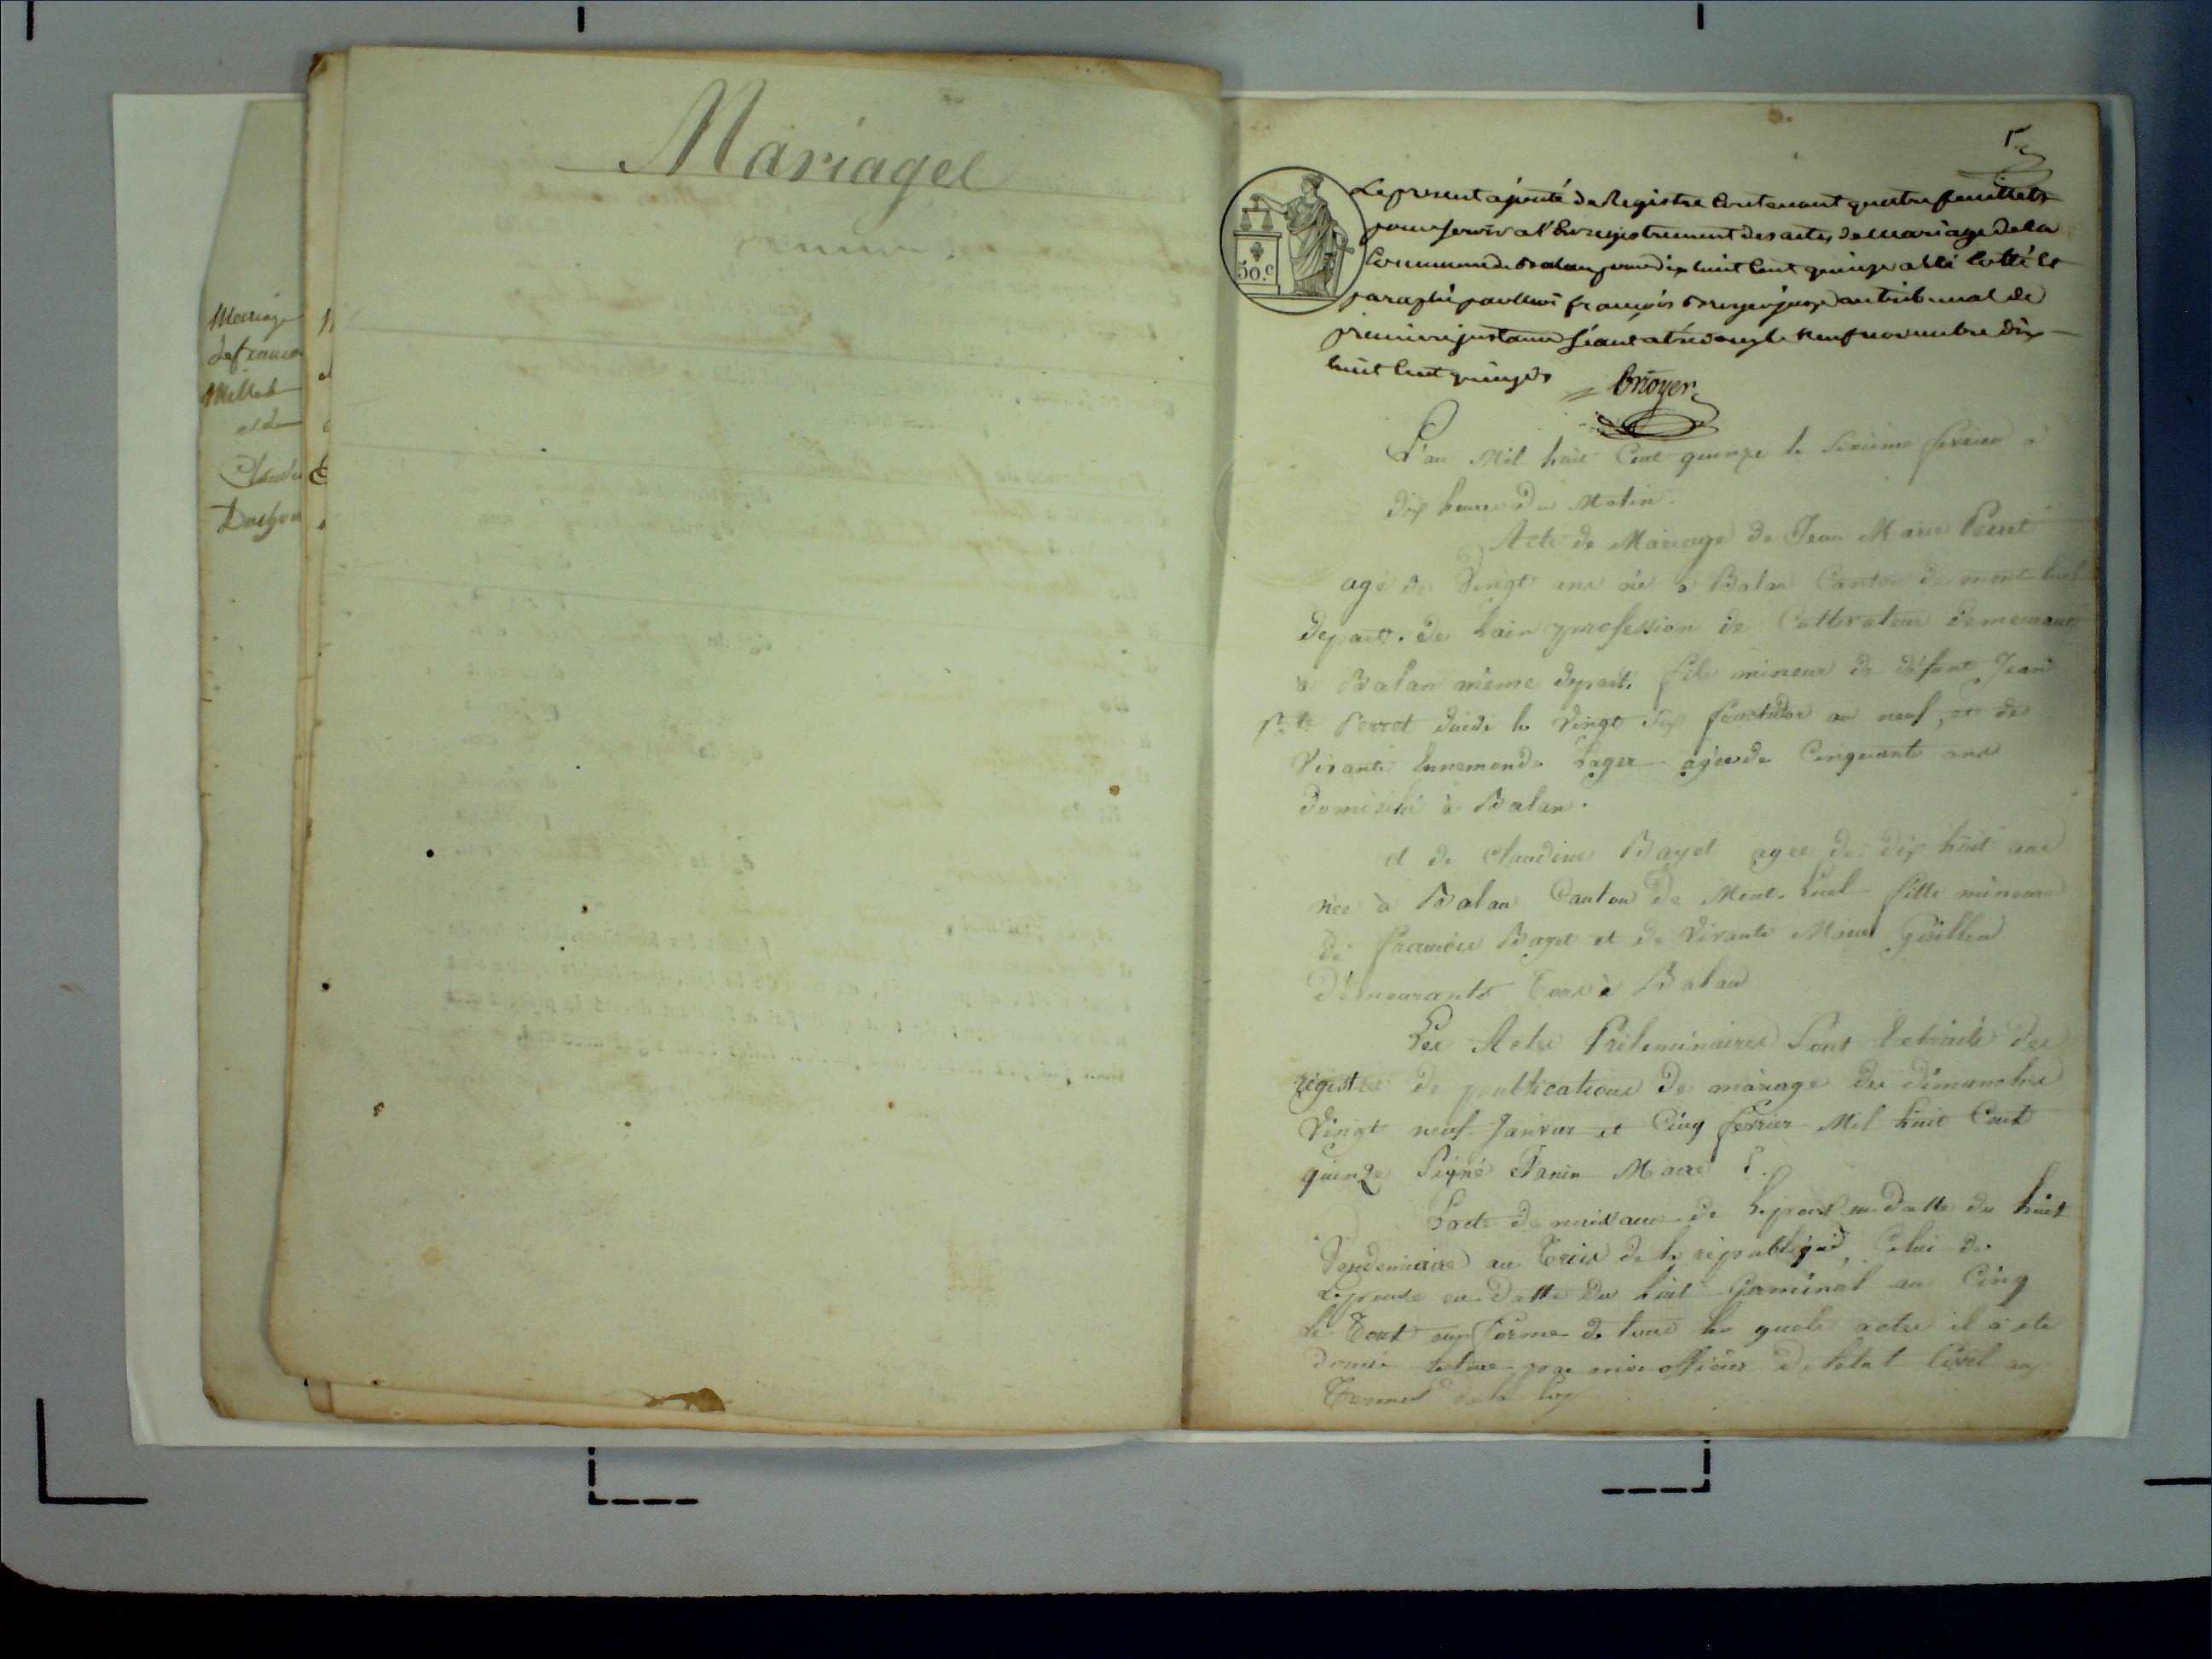 Mariages
Mariage
de francoi
Millet
et de
Claudi
5
50.c
Le present ajouté de Registre Contenant quatre feuillets
pour servir a l'Enregistrement des actes de mariage de la
Commune de Balan pour dix huit Cent quinze a été Cotté Et
paraphé par Nous françois Bruyer juge au tribunal de
premiere instance séant a trévoux le Neuf novembre dix
huit Cent quinze
L'an Mil huit Cent quinze le Sixieme fevrier à
dix heures du Matin.
Acte de Mariage de Jean Marie Perret
agé de Vingt ans né à Balan Canton de mont luel
depart. de Lain profession de Cultivateur demeurant
à Balan même depart. fils mineur de défunt Jean
Perret décédé le Vingt Six fructidor an neuf, et de
Vivante Ennemonde Lager agée de Cinquante ans
domicilié à Balan.
et de Claudine Bayet agée de dix huit ans
née à Balan Canton de Mont-Luel fille mineure
de francois Bayet et de Vivante Marie Guillon
Démeurants Tous à Balan
Les Actes Préleminaires Sont Extraits des
régistres de publications de mariage du dimanche
Vingt neuf Janvier et Cinq fevrier Mil huit Cent
quinze Signé Janin Maire
Lacte de naissance de Lepoux en datte du huit
Vendemiaire an Trois de la république, Celui de
Lepouse en datte du huit Germinal an Cinq
Le Tout en forme de tous les quels actes il à été
donné lecture par moi officier de letat Civil aux
Termes de la Loy